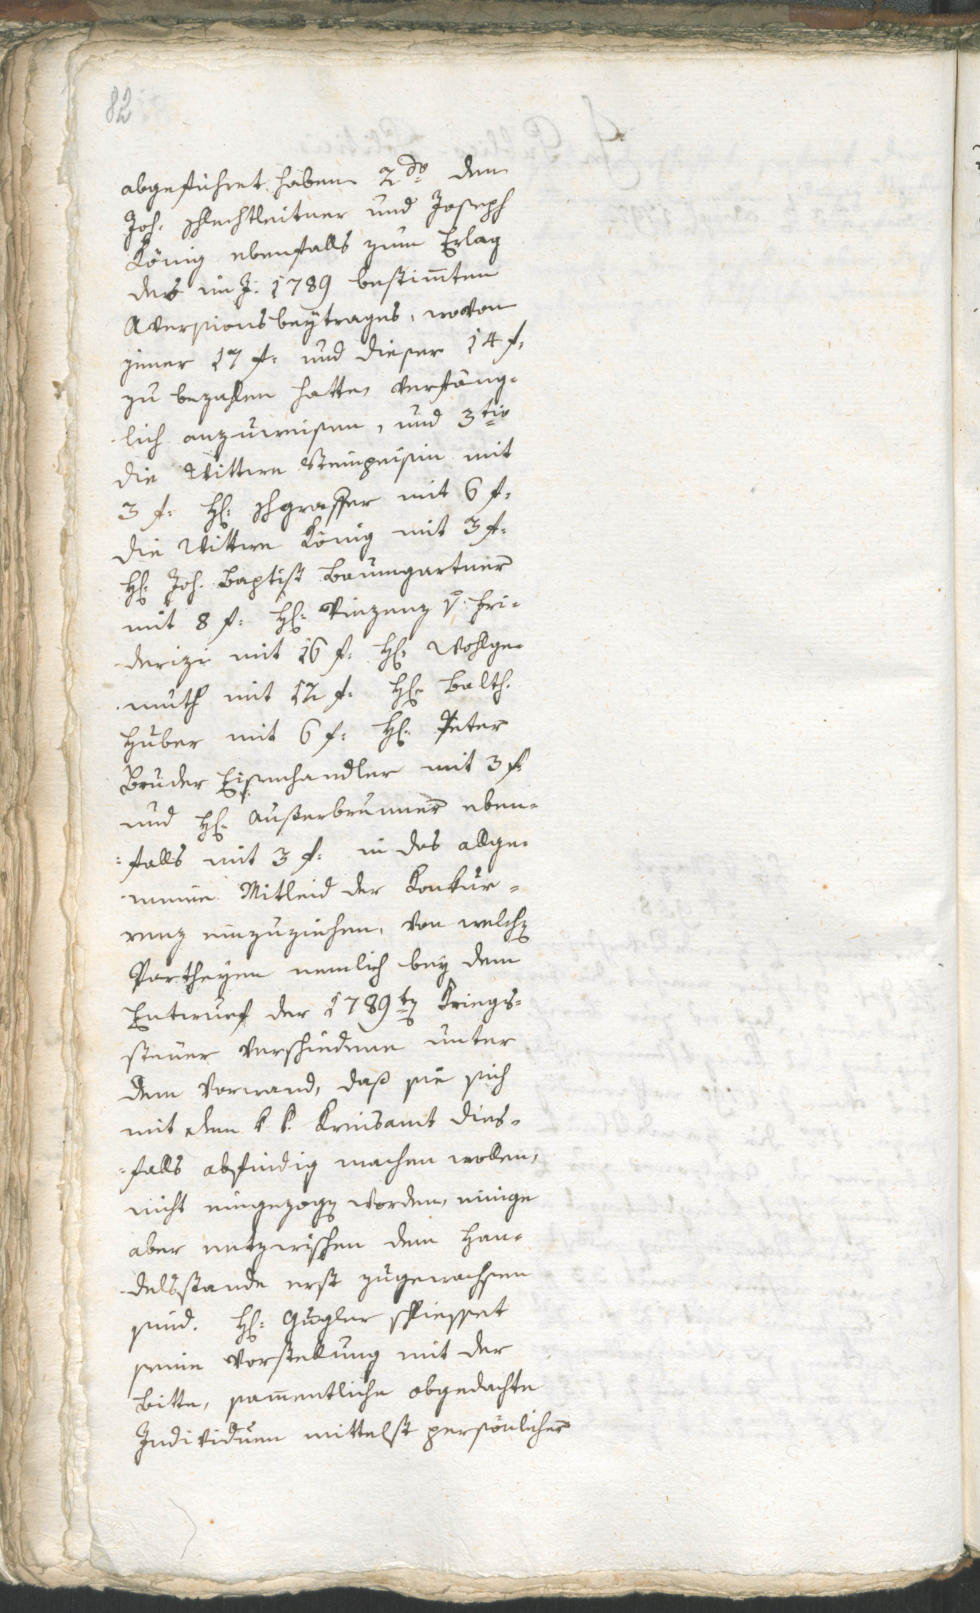 82
abgeführet haben. 2do dem
Joh. Schlechtleitner und Joseph
König ebenfalls zum Erlag
des im J: 1789 bestim̅ten
Aversionsbeytrages, wovon
jener 17 f: und dieser 14 f:
zu bezahlen hatte, verfäng-
lich anzuweisen, und 3tio
die Wittwe mit
3 f: H: Schgraffer mit 6 f:
die Wittwe König mit 3 f:
H: Joh. Baptist Baumgartner
mit 8 f: H: Vinzenz v: Fri-
derizi mit 16 f: H: Wohlge-
muth mit 12 f: H: Balth.
Huber mit 6 f: H: Peter
Bruder Eisenhandler mit 3 f:
und H: Außerbrunner eben-
falls mit 3 f: in das allge-
meine Mitleid der Konkur-
renz einzuziehen, von welchen
Partheyen nemlich bey dem
Entwurf der 1789ten Kriegs-
steuer verschiedene unter
dem Vorwand, daß sie sich
mit dem k k. Kreisamt dies-
falls abfindig machen wollen,
nicht eingezogen worden, einige
aber entzwischen dem Han-
delsstande erst zugewachsen
sind. H: Gugler schliesset
seine Vorstellung mit der
Bitte, sam̅entliche obgedachte
Individuen mittelst persönlicher